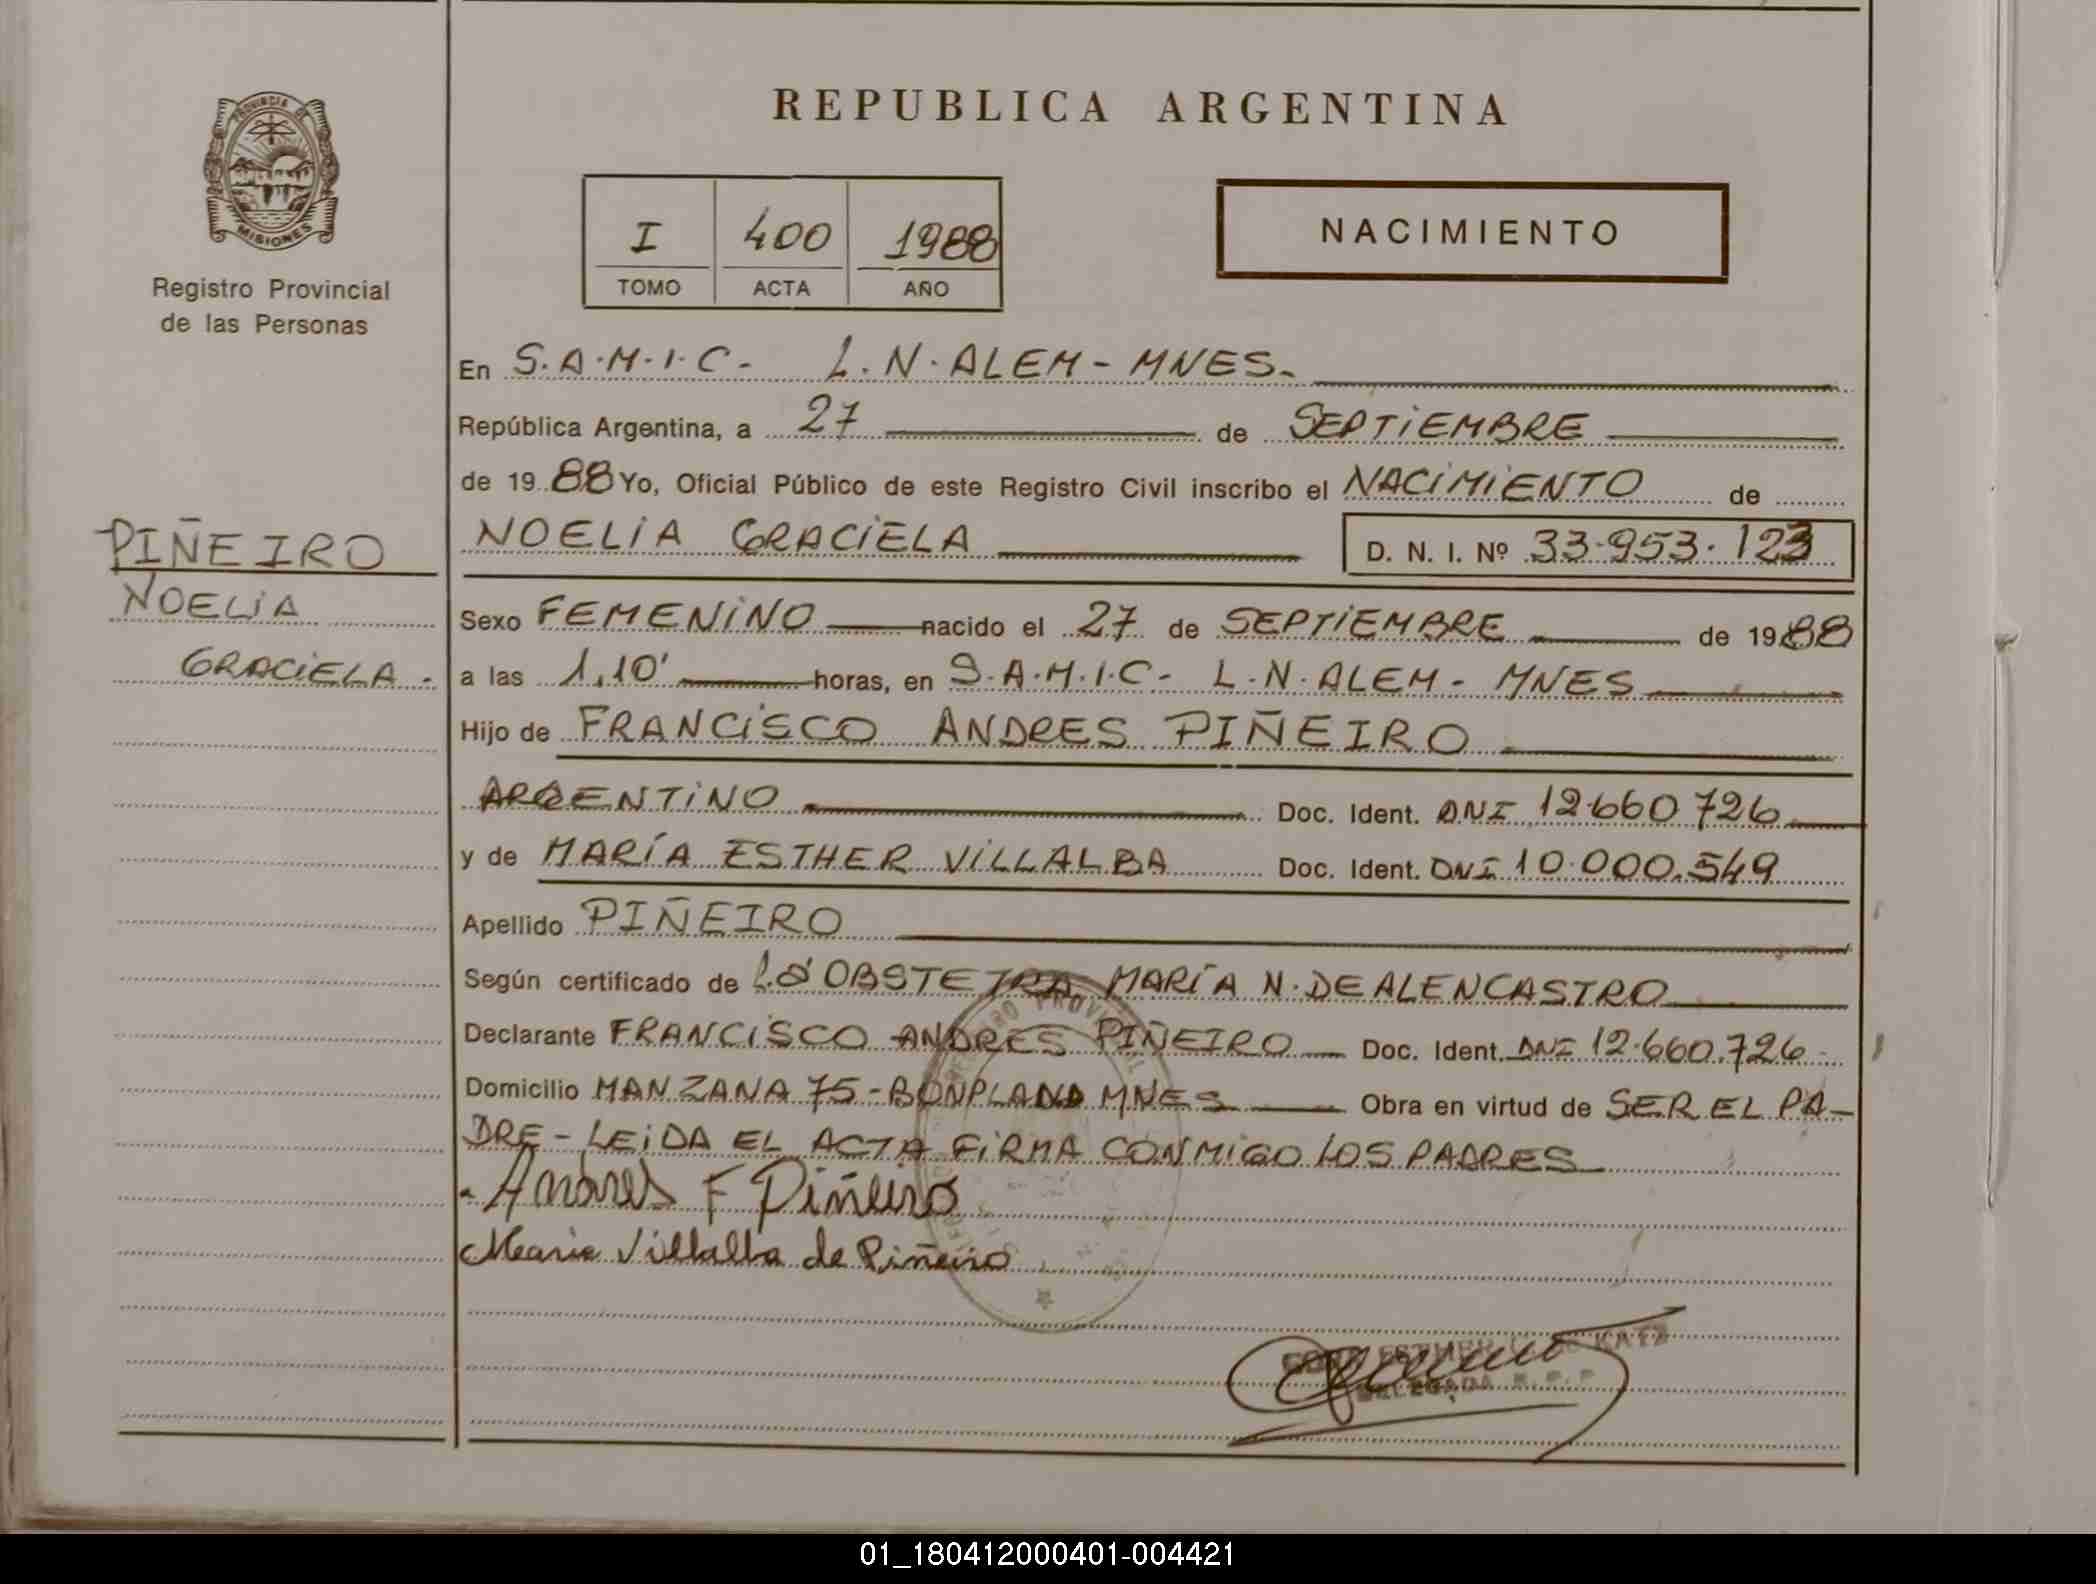 REPUBLICA ARGENTINA
PROVINCIA DE
MISIONES
Registro Provincial
de las Personas
I 400 1988
TOMO ACTA AÑO
NACIMIENTO
En S.A.M.I.C- L.N.ALEM-MNES-
República Argentina, a 27 de SEPTIEMBRE
de 1988 Yo, Oficial Público de este Registro Civil inscribo el NACIMIENTO de
PIÑEIRO
NOELIA
GRACIELA.
NOELIA GRACIELA D. N. I. Nº 33.953.123
Sexo FEMENINO nacido el 27 de SEPTIEMBRE de 1988
a las 1,10' horas, en S.A.M.I.C- L.N.ALEM- MNES
Hijo de FRANCISCO ANDRES PIÑEIRO
ARGENTINO Doc. Ident. DNI 12.660.726
y de MARÍA ESTHER VILLALBA Doc. Ident. DNI 10.000.549
Apellido PIÑEIRO
Según certificado de La OBSTETRA MARÍA N. DE ALENCASTRO
Declarante FRANCISCO ANDRES PIÑEIRO Doc. Ident. DNI 12.660.726
Domicilio MANZANA 75-BONPLAND MNES Obra en virtud de SER EL PA-
DRE-LEIDA EL ACTA FIRMA CONMIGO LOS PADRES
Andres F Piñeiro
Maria Villalba de Piñeiro
ESTHER KATZ
DELEGADA R. P. P.
01_180412000401-004421